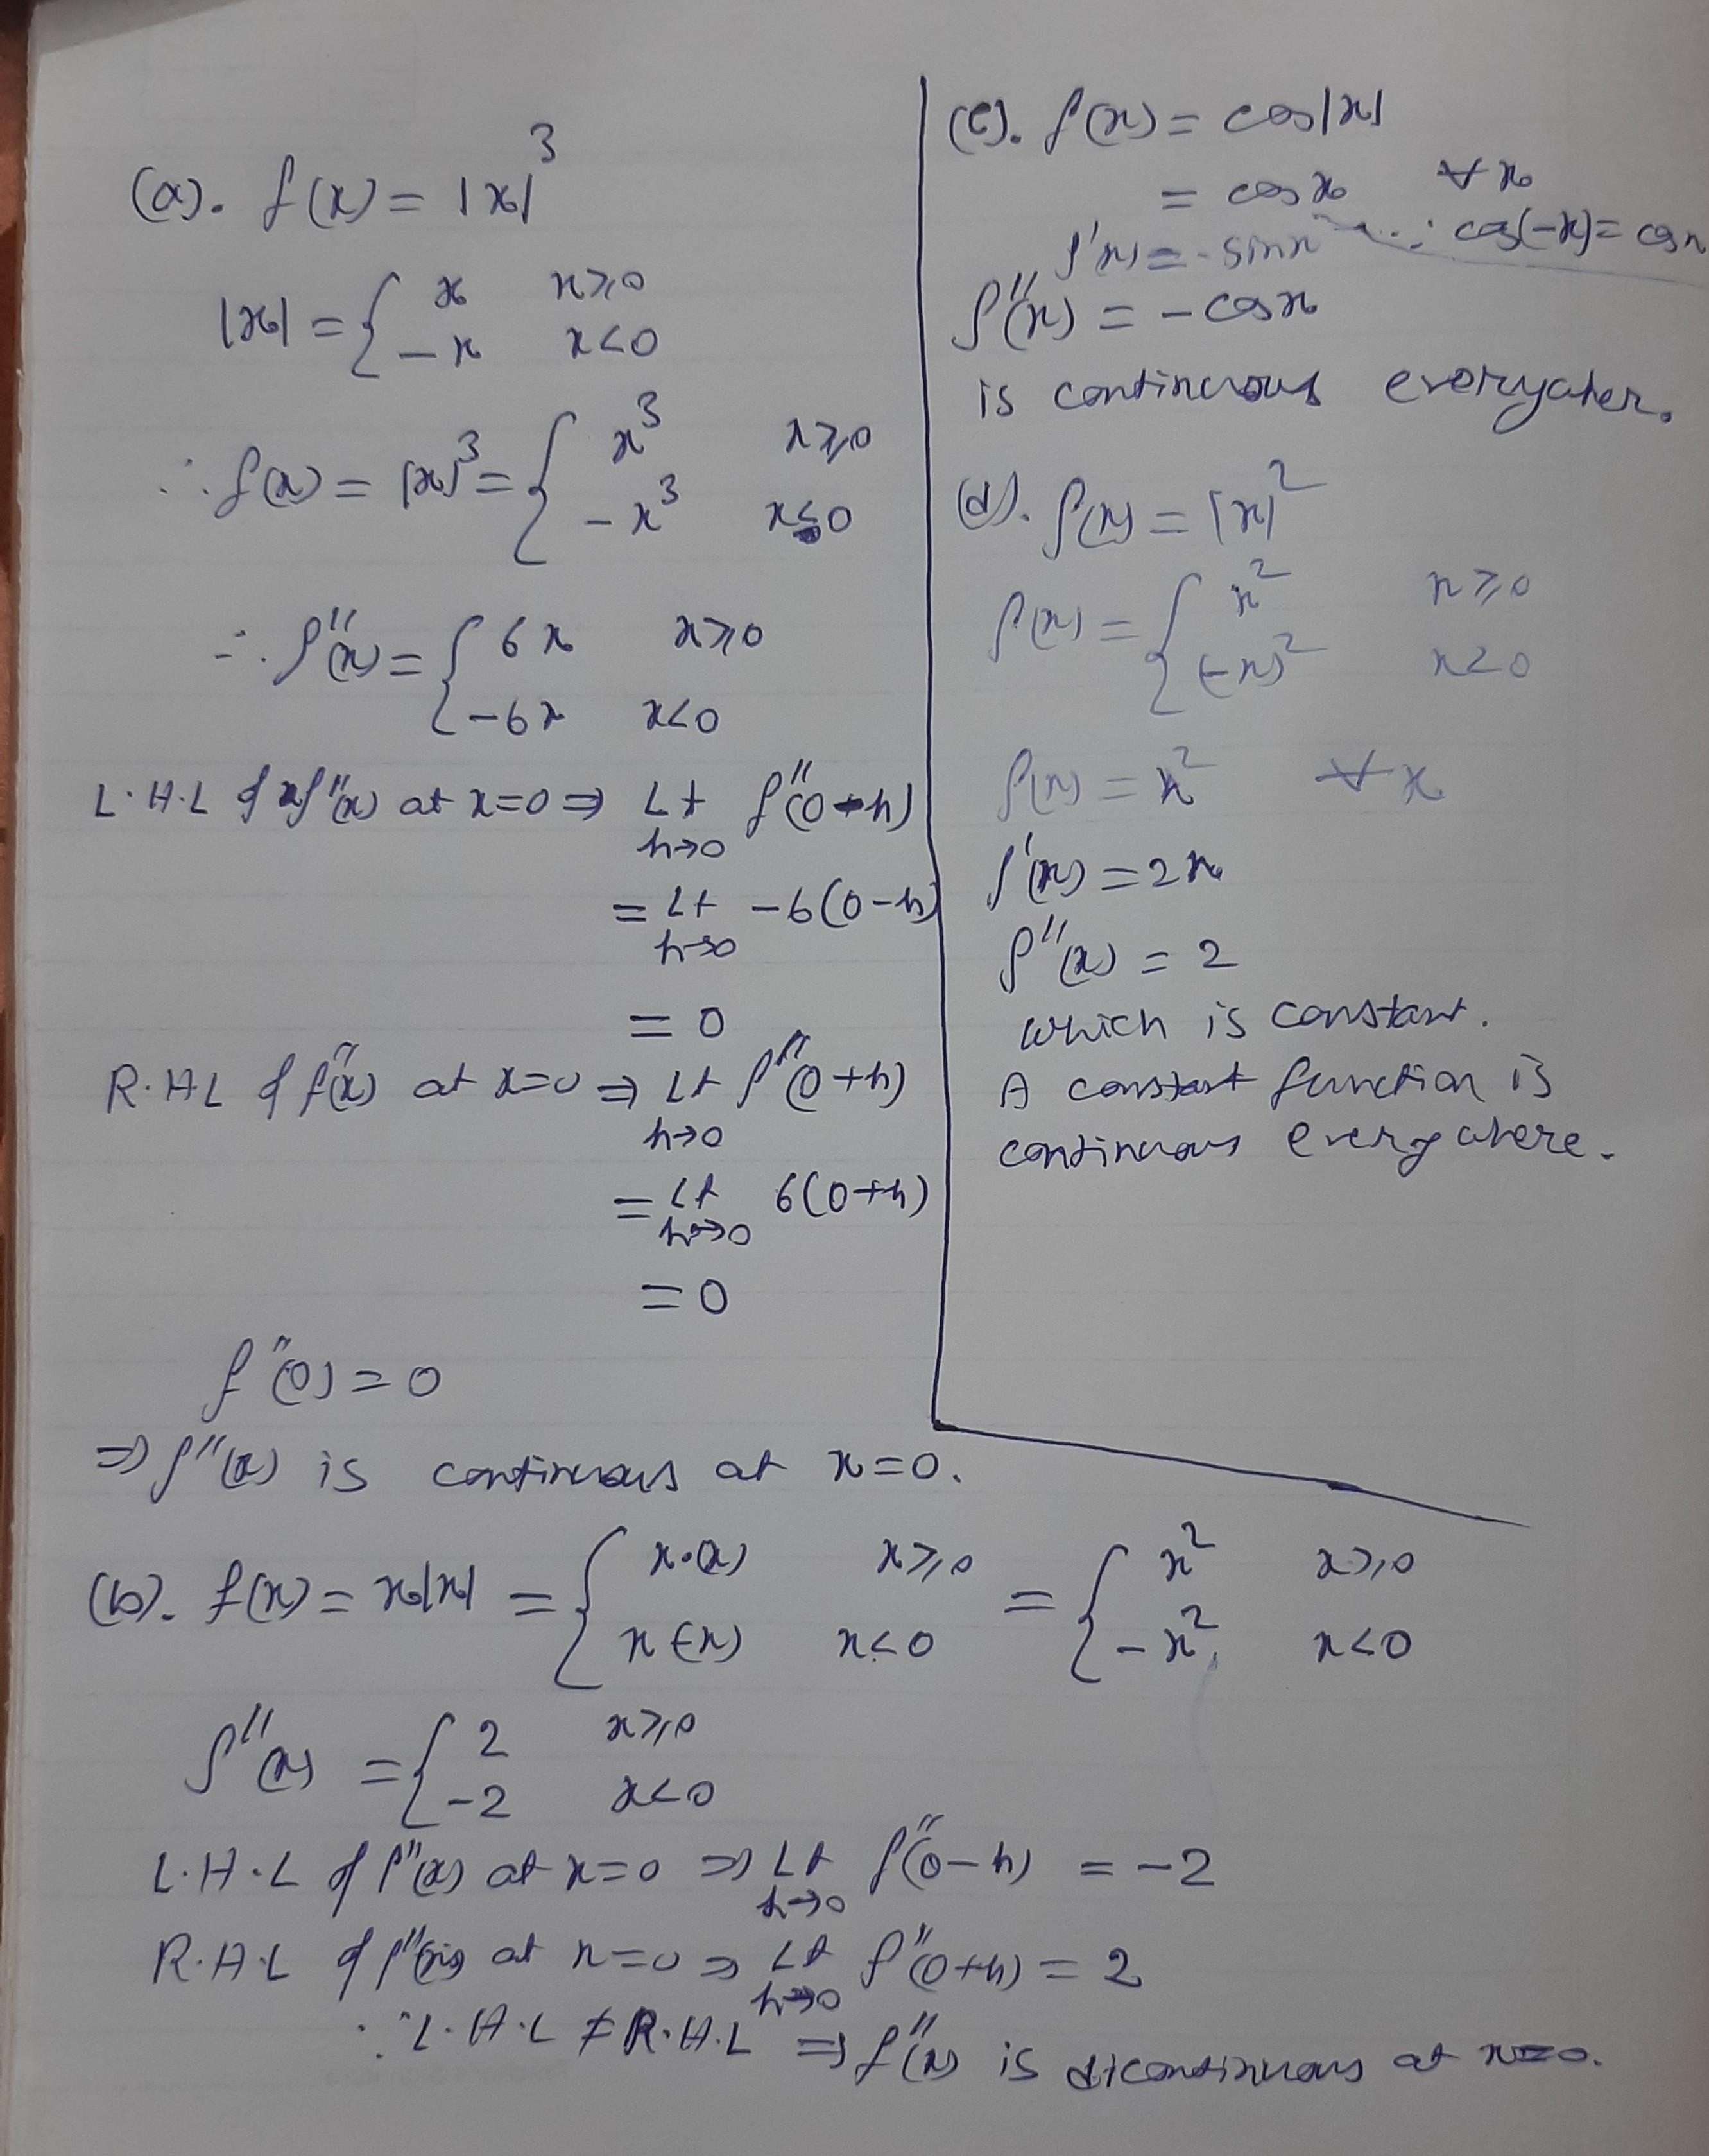 (a). f(x) = |x|³
|x| = { x x≥0
-x x<0
∴ f(x) = |x|³ = { x³ x≥0
-x³ x≤0
∴ f''(x) = { 6x x≥0
-6x x<0
L.H.L of f''(x) at x=0 ⇒ Lt f''(0-h)
h→0
= Lt -6(0-h)
h→0
= 0
R.H.L of f''(x) at x=0 ⇒ Lt f''(0+h)
h→0
= Lt 6(0+h)
h→0
= 0
f''(0) = 0
⇒ f''(x) is continuous at x=0.
(c). f(x) = cos|x|
= cosx ∀ x
∵ cos(-x) = cosx
f'(x) = -sinx
f''(x) = -cosx
is continuous everywher.
(d). f(x) = |x|²
f(x) = { x² x≥0
(-x)² x<0
f(x) = x² ∀ x
f'(x) = 2x
f''(x) = 2
which is constant.
A constant function is
continuous everywhere.
(b). f(x) = x|x| = { x.(x) x≥0 = { x² x≥0
x(-x) x<0 -x², x<0
f''(x) = { 2 x≥0
-2 x<0
L.H.L of f''(x) at x=0 ⇒ Lt f''(0-h) = -2
h→0
R.H.L of f''(x) at x=0 ⇒ Lt f''(0+h) = 2
h→0
∵ L.H.L ≠ R.H.L ⇒ f''(x) is dicontinuous at x=0.